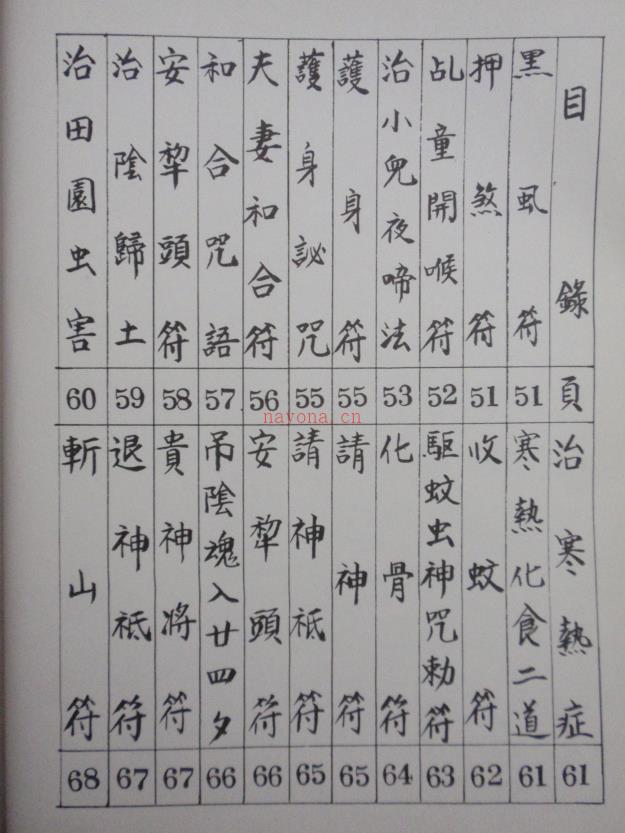 目錄 頁
黑虱符 51
押煞符 51
乩童開喉符 52
治小兒夜啼法 53
護身符 55
護身祕咒 55
夫妻和合符 56
和合咒語 57
安犂頭符 58
治陰歸土 59
治田園虫害 60
治寒熱症 61
寒熱化食二道 61
收蚊符 62
驅蚊虫神咒勅符 63
化骨符 64
請神符 65
請神祗符 65
安犂頭符 66
吊陰魂入廿四夕 66
貴神將符 67
退神祗符 67
斬山符 68
nayona.cn